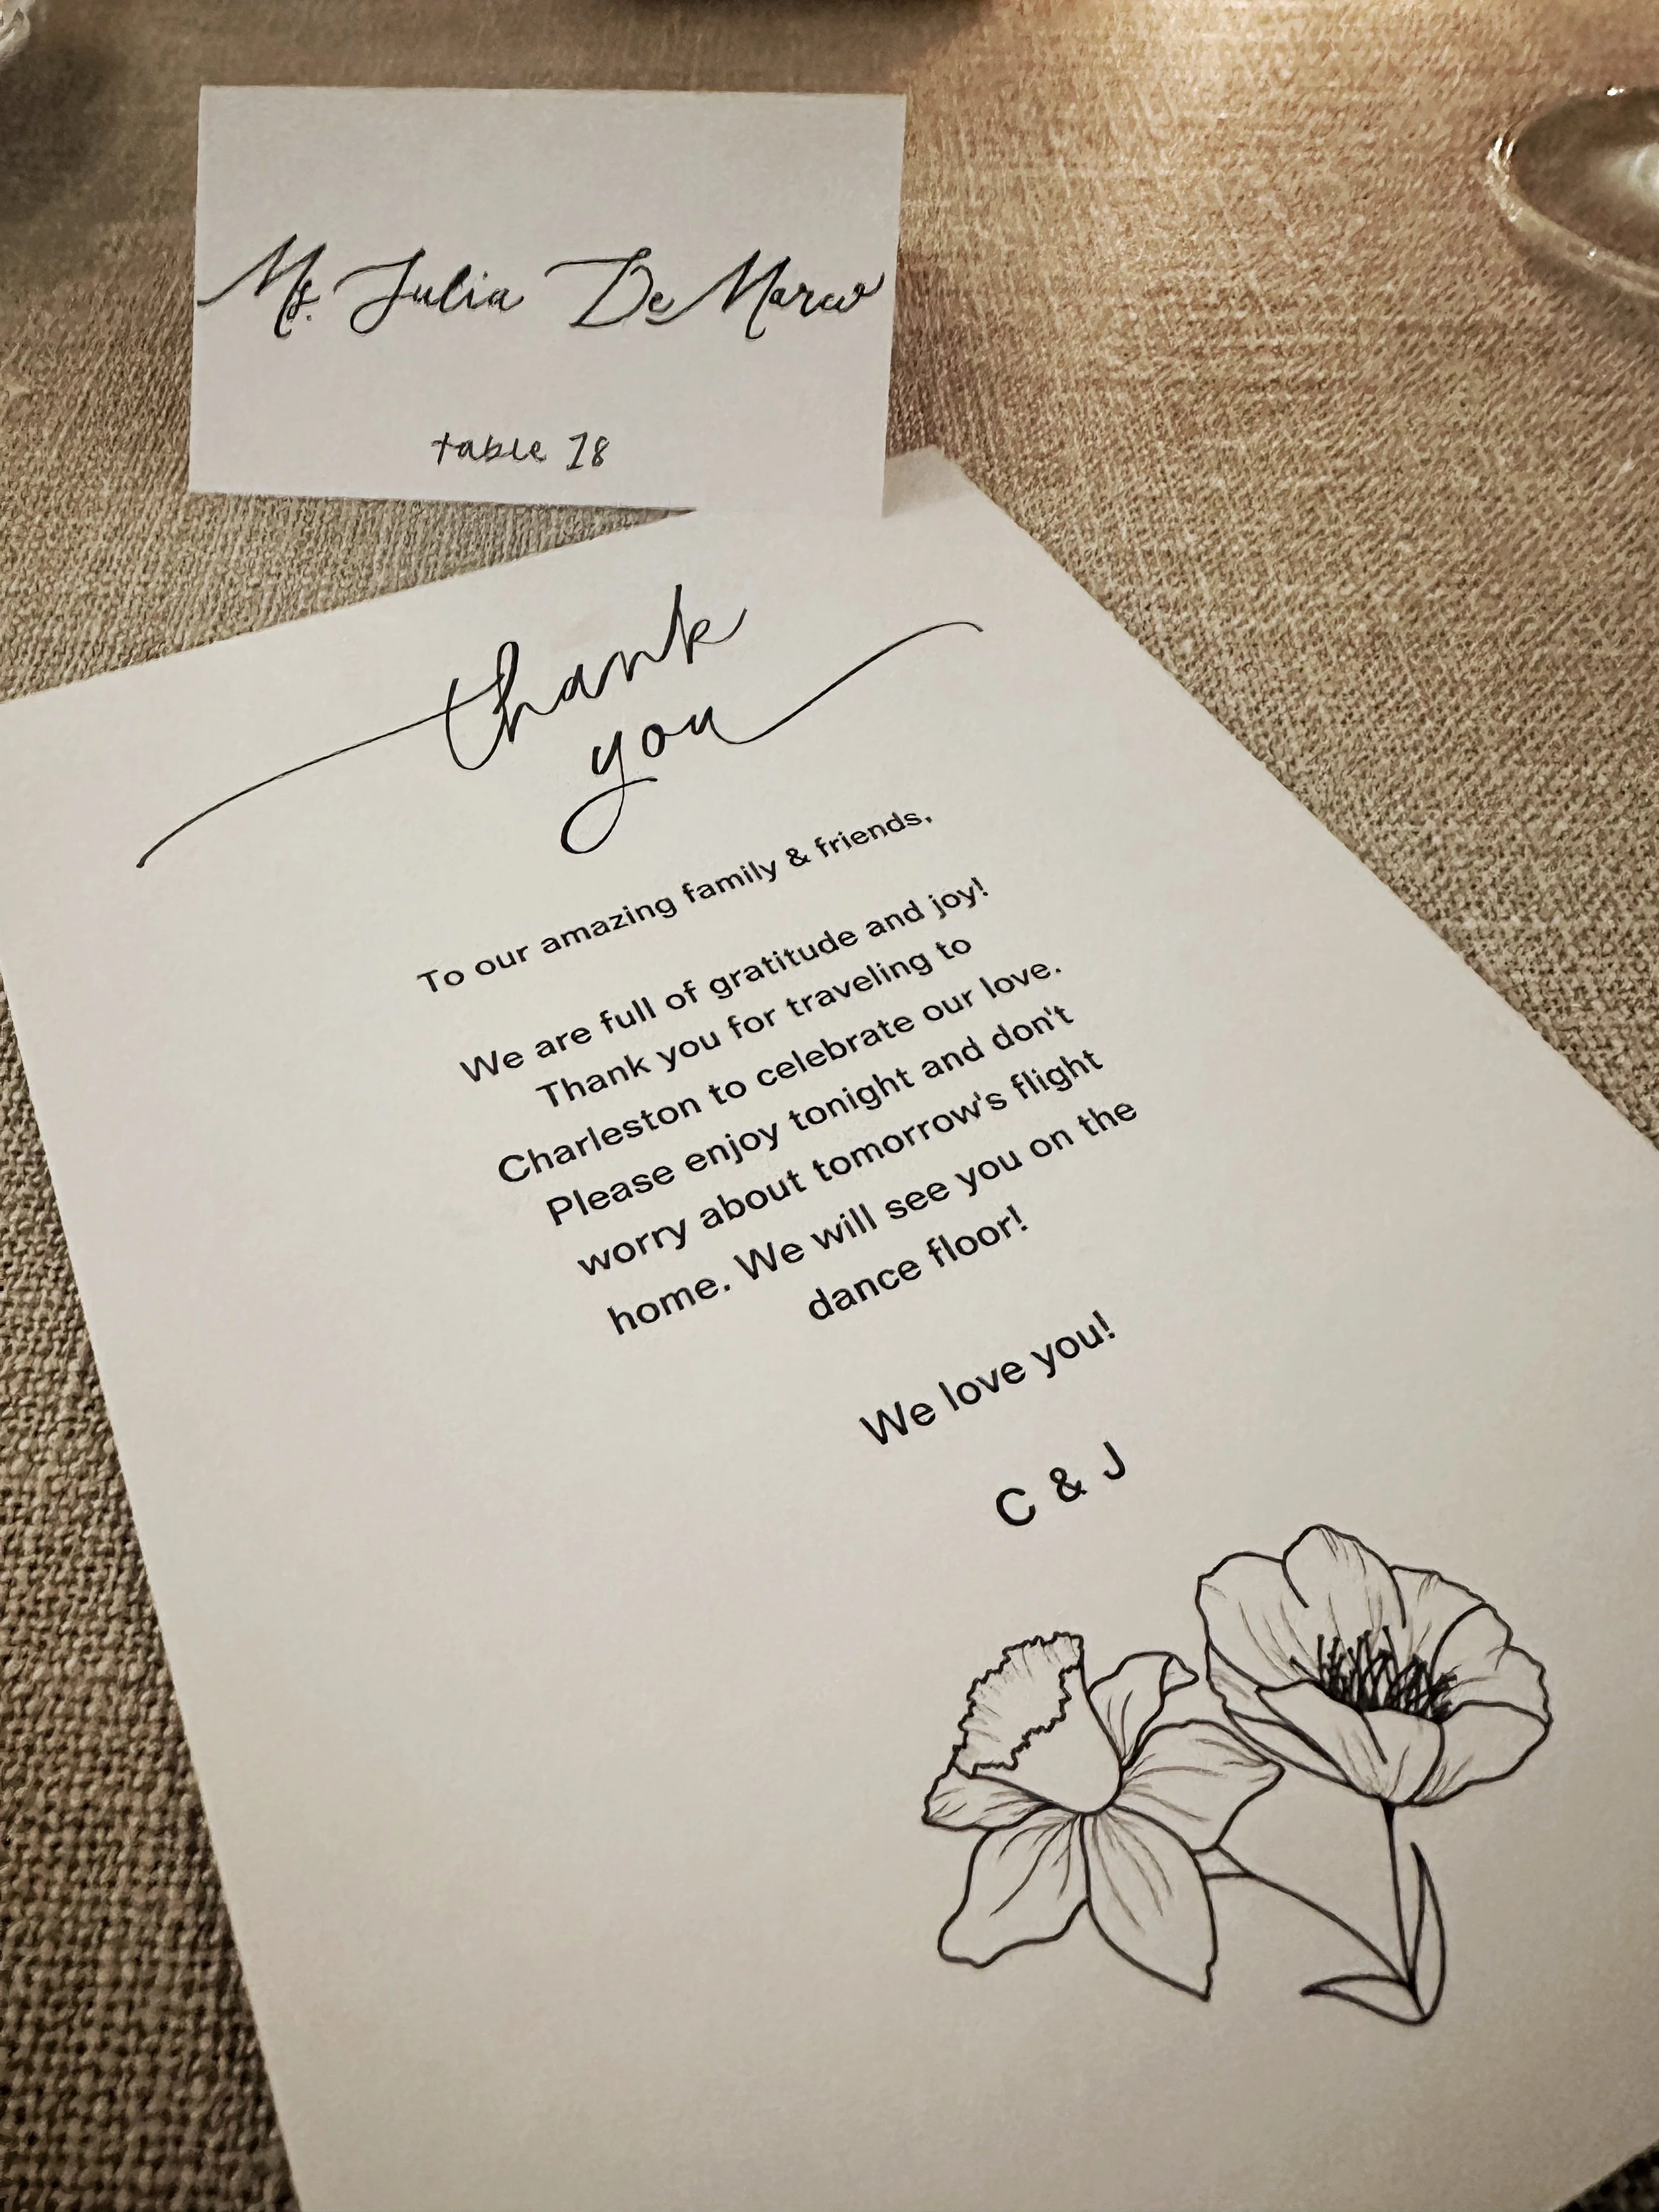 Ms. Julia De Marco
table 18
thank
you
To our amazing family & friends,
We are full of gratitude and joy!
Thank you for traveling to
Charleston to celebrate our love.
Please enjoy tonight and don't
worry about tomorrow's flight
home. We will see you on the
dance floor!
We love you!
C & J